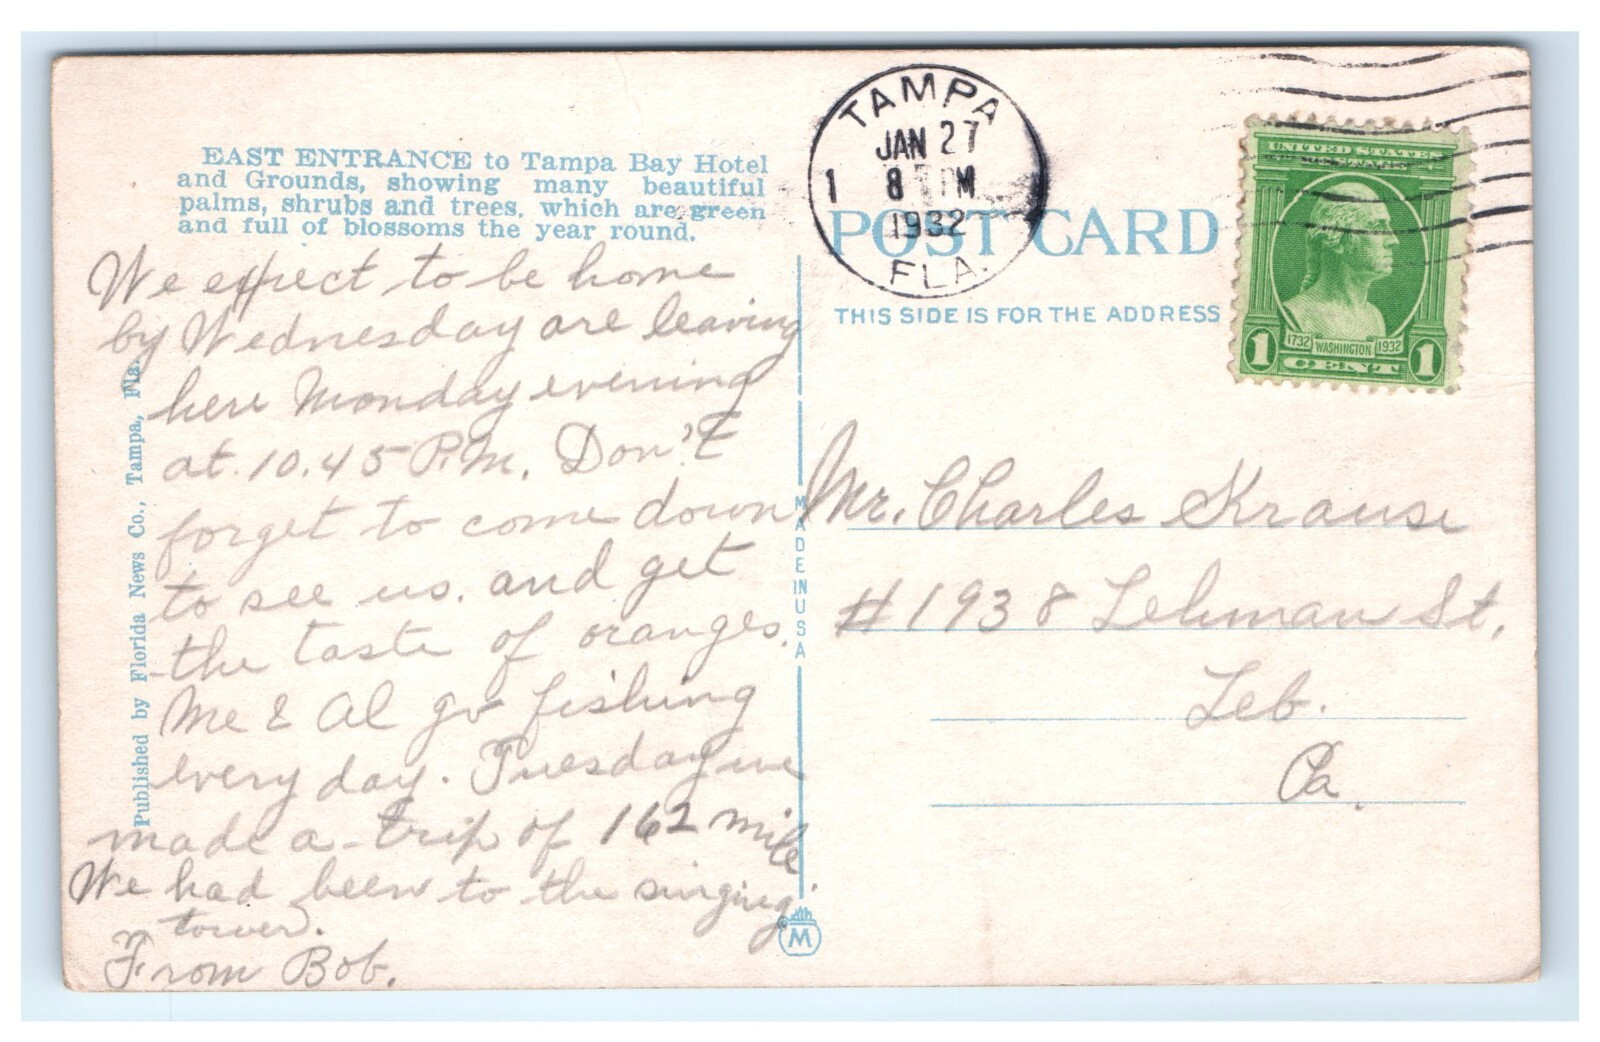 EAST ENTRANCE to Tampa Bay Hotel
and Grounds, showing many beautiful
palms, shrubs and trees, which are green
and full of blossoms the year round.
We expect to be home
by Wednesday are leaving
here Monday evening
at 10.45 P.M. Don't
forget to come down
to see us. and get
the taste of oranges.
Me & Al go fishing
every day. Tuesday we
made a trip of 162 mile
We had been to the singing
tower.
From Bob.
Published by Florida News Co., Tampa, Fla.
MADE IN USA
M
TAMPA
JAN 27
1 8 PM
1932
FLA.
POST CARD
THIS SIDE IS FOR THE ADDRESS
UNITED STATES
POSTAGE
1732 WASHINGTON 1932
1 CENT 1
Mr. Charles Krause
#1938 Lehman St.
Leb.
Pa.